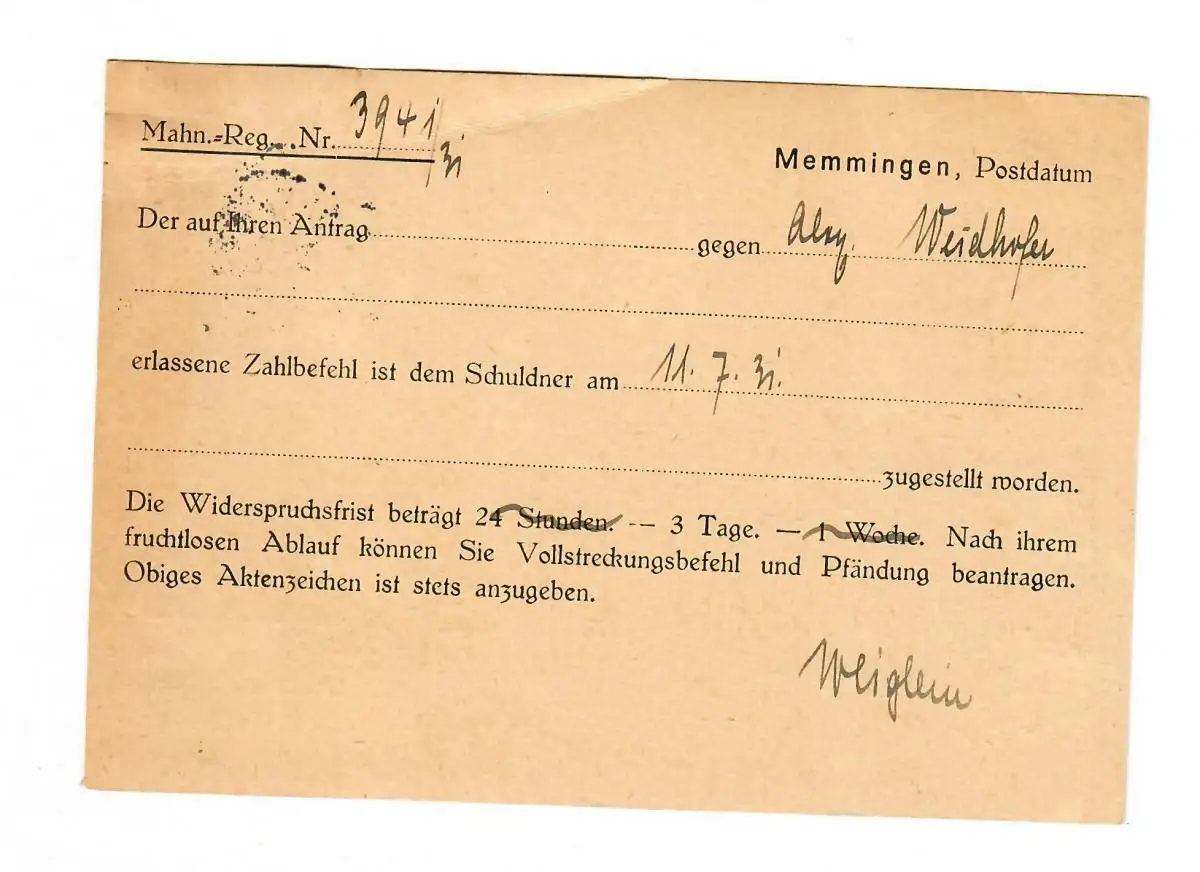 Mahn.-Reg. Nr. 3941/31
Memmingen, Postdatum
Der auf Ihren Antrag gegen Weidhofer
erlassene Zahlbefehl ist dem Schuldner am 11. 7. 31.
zugestellt worden.
Die Widerspruchsfrist beträgt 24 Stunden. -- 3 Tage. — 1 Woche. Nach ihrem
fruchtlosen Ablauf können Sie Vollstreckungsbefehl und Pfändung beantragen.
Obiges Aktenzeichen ist stets anzugeben.
Weiglein